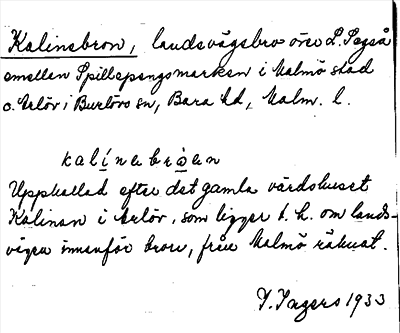 Kalinebron, landsvägsbro över L. Segeå
emellan Spillepengsmarken i Malmö stad
o. Arlöv i Burlövs sn, Bara hd, Malm. l.
kalinebroen
Uppkallad efter det gamla värdshuset
Kalinan i Arlöv, som ligger t. h. om lands-
vägen innanför bron, från Malmö räknat.
I. Ingers 1933